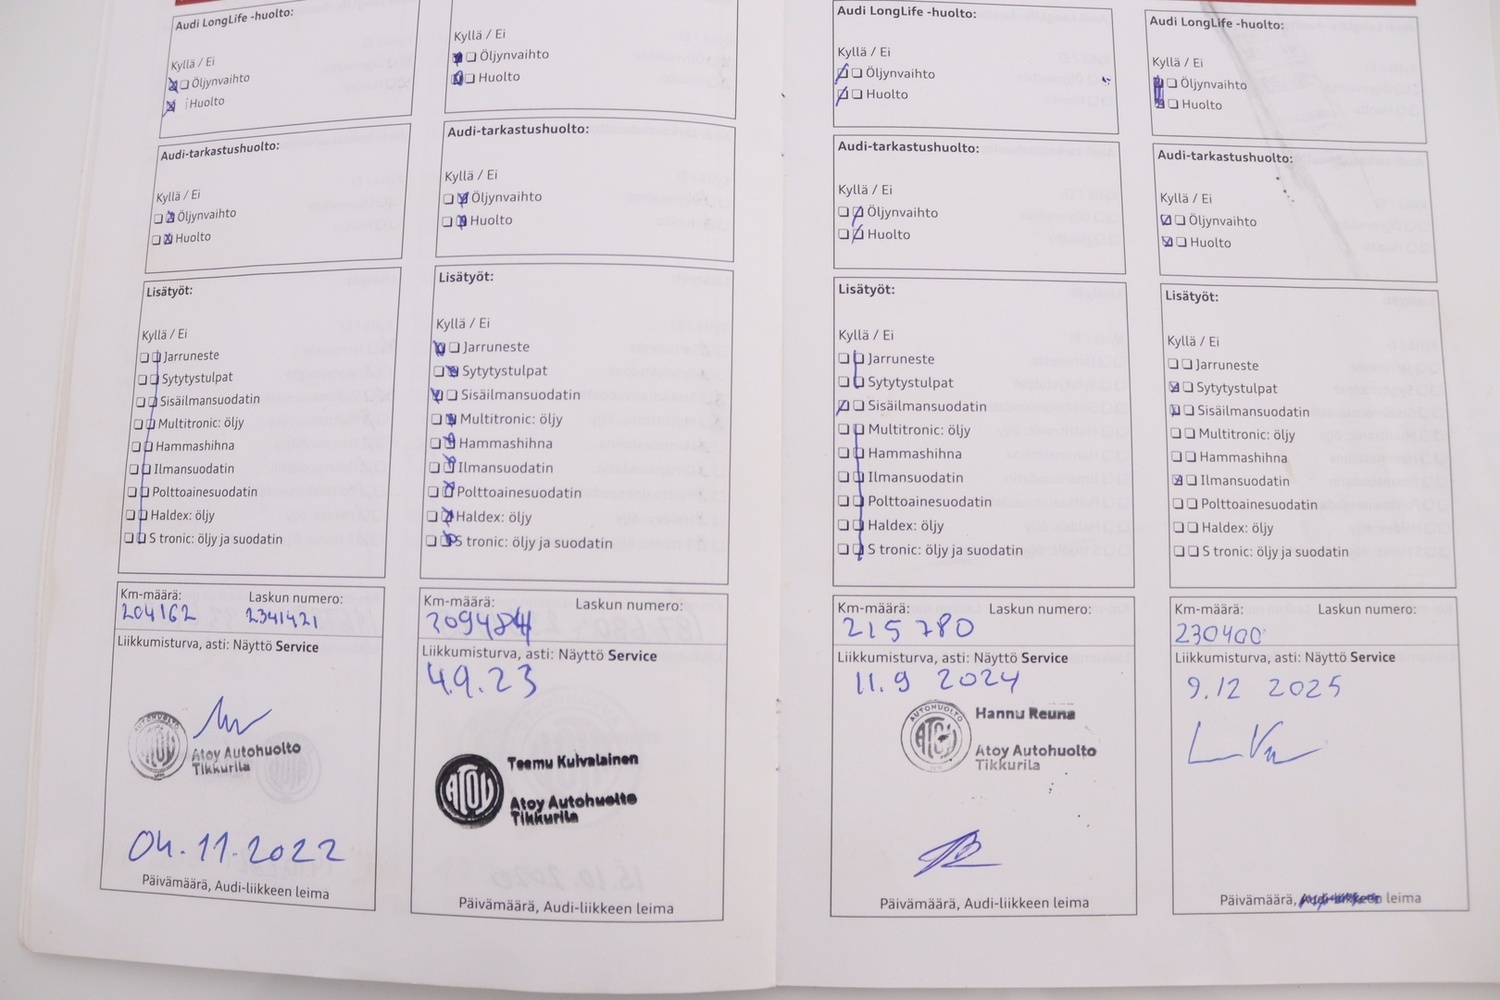 Audi LongLife -huolto:
Kyllä / Ei
Öljynvaihto
Huolto
Audi-tarkastushuolto:
Kyllä / Ei
Öljynvaihto
Huolto
Lisätyöt:
Kyllä / Ei
Jarruneste
Sytytystulpat
Sisäilmansuodatin
Multitronic: öljy
Hammashihna
Ilmansuodatin
Polttoainesuodatin
Haldex: öljy
S tronic: öljy ja suodatin
Km-määrä: Laskun numero:
204162 2341421
Liikkumisturva, asti: Näyttö Service
AUTOHUOLTO
ATOY
Atoy Autohuolto
Tikkurila
04.11.2022
Päivämäärä, Audi-liikkeen leima
Kyllä / Ei
Öljynvaihto
Huolto
Audi-tarkastushuolto:
Kyllä / Ei
Öljynvaihto
Huolto
Lisätyöt:
Kyllä / Ei
Jarruneste
Sytytystulpat
Sisäilmansuodatin
Multitronic: öljy
Hammashihna
Ilmansuodatin
Polttoainesuodatin
Haldex: öljy
S tronic: öljy ja suodatin
Km-määrä: Laskun numero:
209484
Liikkumisturva, asti: Näyttö Service
4.9.23
ATOY
Teemu Kuivalainen
Atoy Autohuolto
Tikkurila
Päivämäärä, Audi-liikkeen leima
Audi LongLife -huolto:
Kyllä / Ei
Öljynvaihto
Huolto
Audi-tarkastushuolto:
Kyllä / Ei
Öljynvaihto
Huolto
Lisätyöt:
Kyllä / Ei
Jarruneste
Sytytystulpat
Sisäilmansuodatin
Multitronic: öljy
Hammashihna
Ilmansuodatin
Polttoainesuodatin
Haldex: öljy
S tronic: öljy ja suodatin
Km-määrä: Laskun numero:
215 780
Liikkumisturva, asti: Näyttö Service
11.9 2024
AUTOHUOLTO
ATOY
Hannu Reuna
Atoy Autohuolto
Tikkurila
Päivämäärä, Audi-liikkeen leima
Audi LongLife -huolto:
Kyllä / Ei
Öljynvaihto
Huolto
Audi-tarkastushuolto:
Kyllä / Ei
Öljynvaihto
Huolto
Lisätyöt:
Kyllä / Ei
Jarruneste
Sytytystulpat
Sisäilmansuodatin
Multitronic: öljy
Hammashihna
Ilmansuodatin
Polttoainesuodatin
Haldex: öljy
S tronic: öljy ja suodatin
Km-määrä: Laskun numero:
230400
Liikkumisturva, asti: Näyttö Service
9.12 2025
Päivämäärä, Audi-liikkeen leima